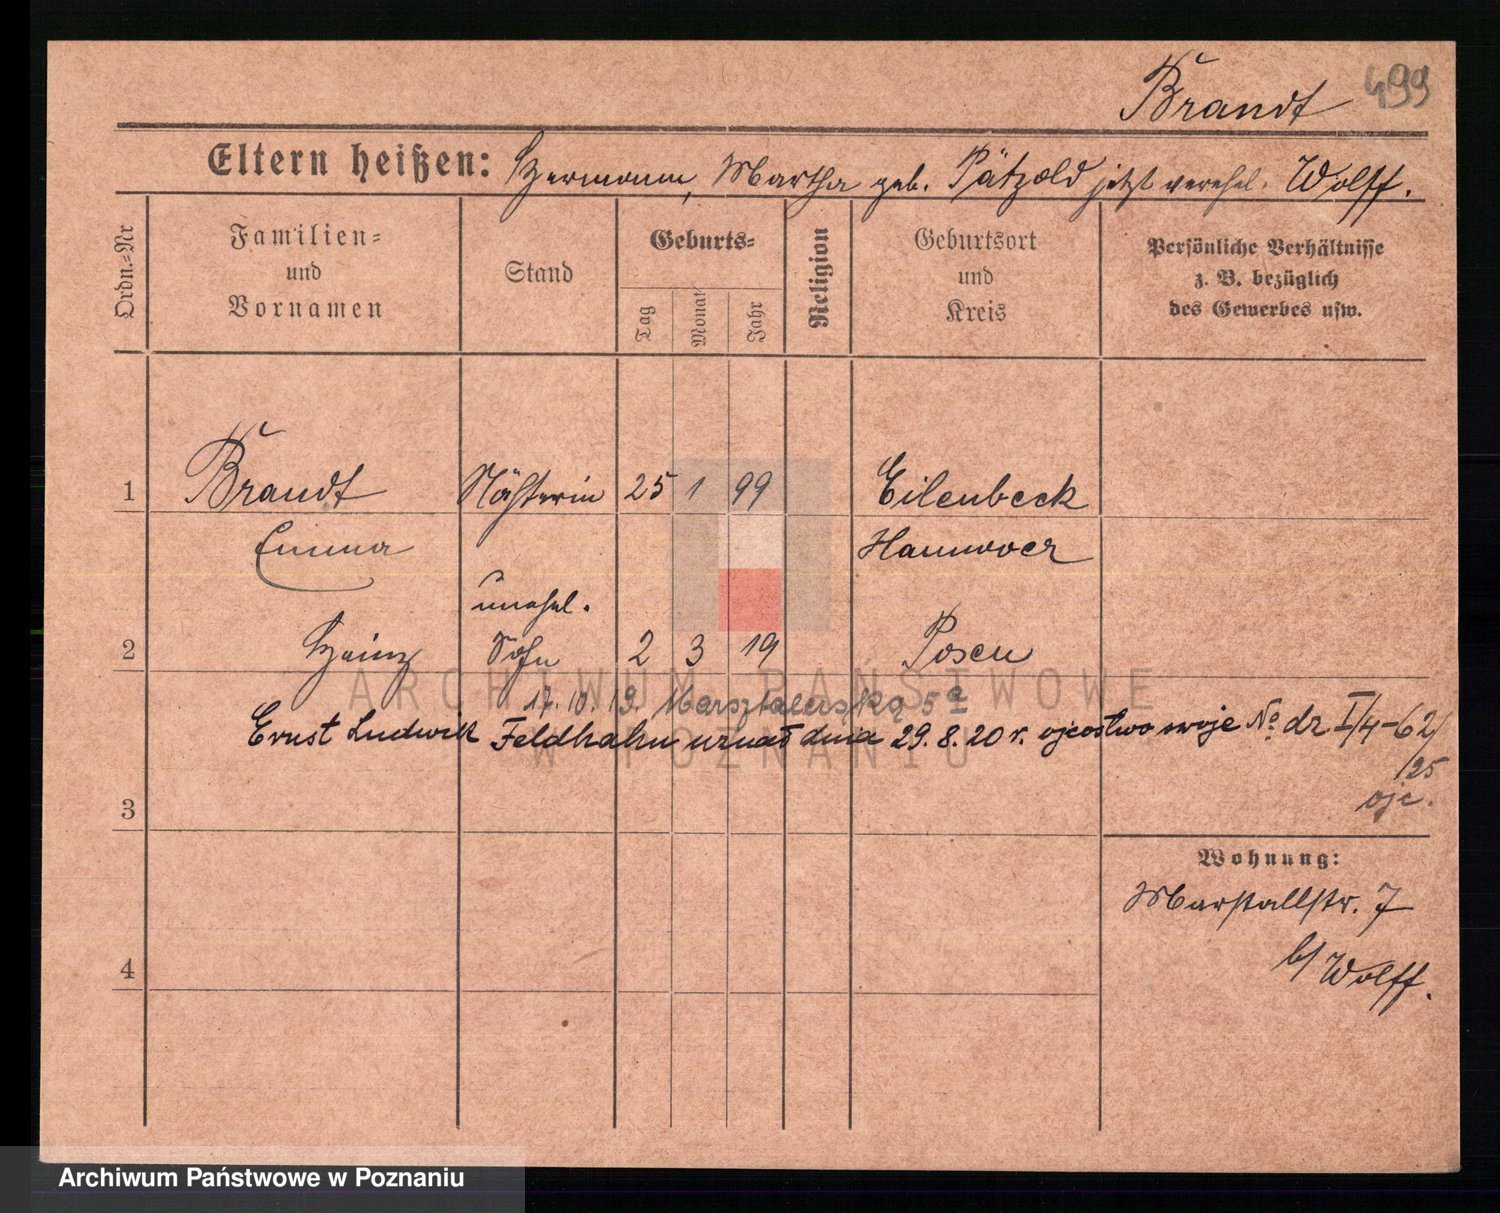 Brandt 499
Eltern heißen: Hermann, Martha geb. Pätzold jetzt verehel. Wolff.
Ordn.-Nr
Familien-
und
Vornamen
Stand
Geburts-
Tag
Monat
Jahr
Religion
Geburtsort
und
Kreis
Persönliche Verhältnisse
z. B. bezüglich
des Gewerbes usw.
1 Brandt Nähterin 25 1 99 Eilenbeck
Emma Hannover
unehel.
2 Heinz Sohn 2 3 19 Posen
17. 10. 19. Marsztalerska 5a
Ernst Ludwik Feldhahn uznał dnia 29. 8. 20 r. ojcostwo swoje No dz I/4-62/
/25
ojc.
3
Wohnung:
Marstallstr. 7
b/ Wolff.
4
ARCHIWUM PAŃSTWOWE
W POZNANIU
Archiwum Państwowe w Poznaniu